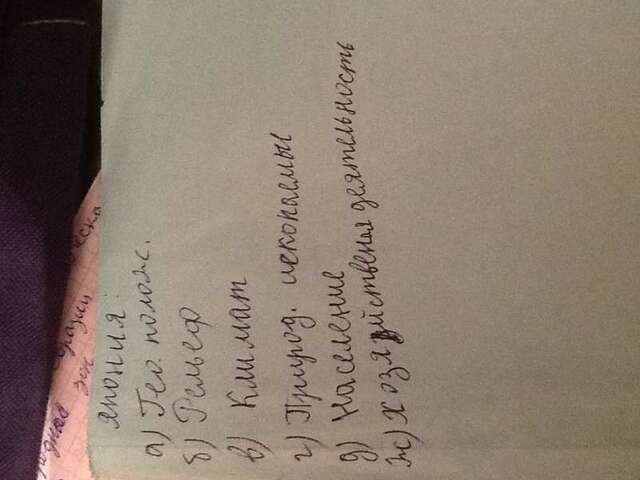 зон
япония:
а) Гео. полож.
б) Рельеф
в) Климат
г) Природ. ископаемые
д) Население
ж) хозяйственая деятельность